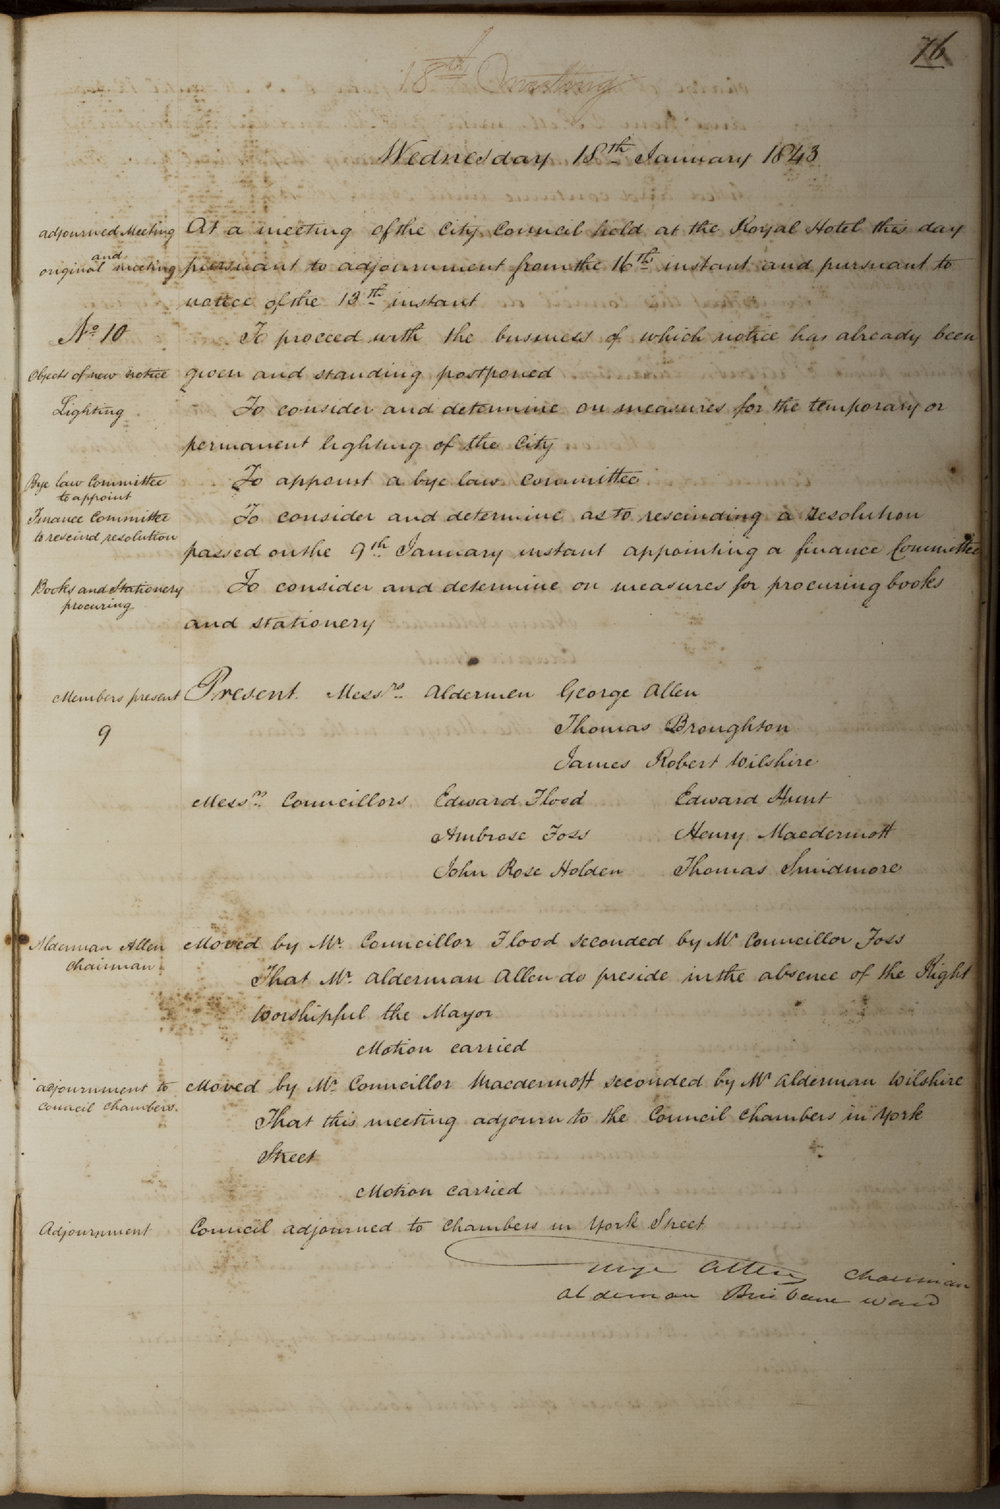 76
18th Meeting
Wednesday 18th January 1843
adjourned Meeting
and
original meeting
At a meeting of the City Council held at the Royal Hotel this day
pursuant to adjournment from the 16th instant and pursuant to
notice of the 13th instant
No 10
To proceed with the business of which notice has already been
Objects of new notice
given and standing postponed
Lighting
To consider and determine on measures for the temporary or
permanent lighting of the City
Bye law Committee
to appoint
To appoint a bye law committee
Finance Committee
to rescind resolution
To consider and determine as to rescinding a resolution
passed on the 9th January instant appointing a finance Committee
Books and Stationery
procuring
To consider and determine on measures for procuring books
and stationery
Members present
9
Present. Messrs Aldermen George Allen
Thomas Broughton
James Robert Wilshire
Messrs Councillors Edward Flood Edward Hunt
Ambrose Foss Henry Macdermott
John Rose Holden Thomas Smidmore
Alderman Allen
Chairman
Moved by Mr Councillor Flood seconded by Mr Councillor Foss
That Mr Alderman Allen do preside in the absence of the Right
Worshipful the Mayor
Motion carried
adjournment to
Council Chambers.
Moved by Mr Councillor Macdermott seconded by Mr Alderman Wilshire
That this meeting adjourn to the Council Chambers in York
Street
Motion carried
Adjournment
Council adjourned to Chambers in York Street
Allen Chairman
Alderman Brisbane Ward